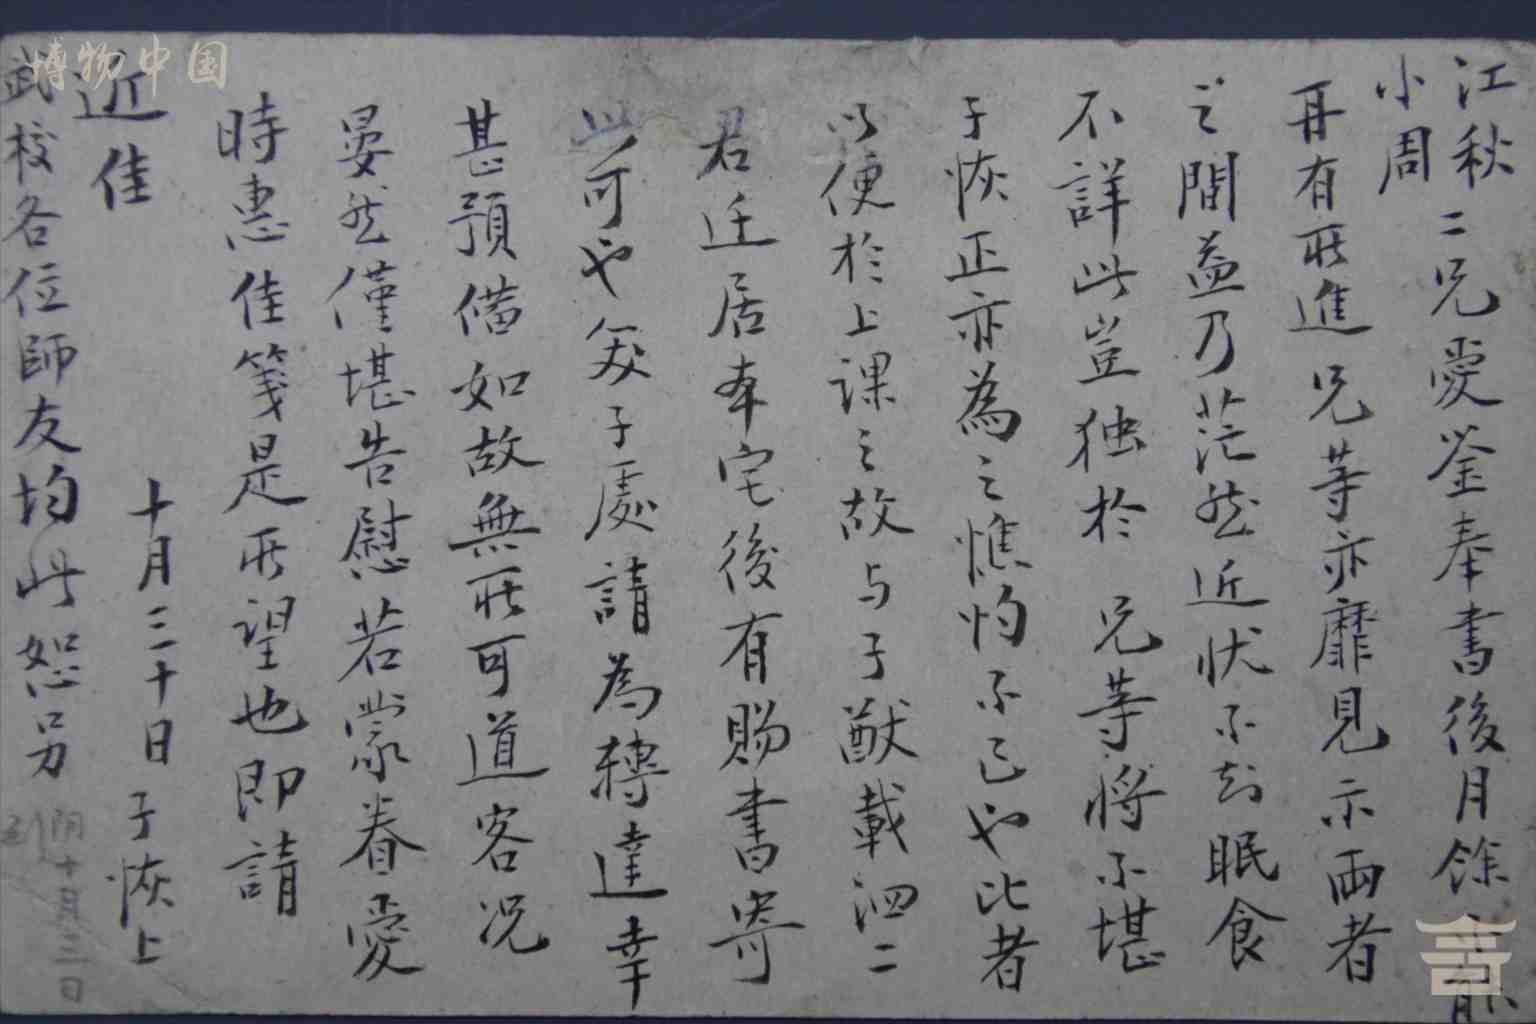 博物中国
江秋
小周
二兄愛鉴奉書後月餘
再有所進兄等亦靡見示兩者
之間益乃茫然近状不知眠食
不詳此豈独於兄等將不堪
子恢正亦為之憔灼不已也比者
以便於上課之故与子猷載泗二
君迁居本宅後有賜書寄
此可也矣子處請為轉達幸
甚預備如故無所可道客况
晏然僅堪告慰若蒙眷愛
時惠佳箋是所望也即請
近佳
十月三十日子恢上
武校各位師友均此恕另
阴十月三日
到